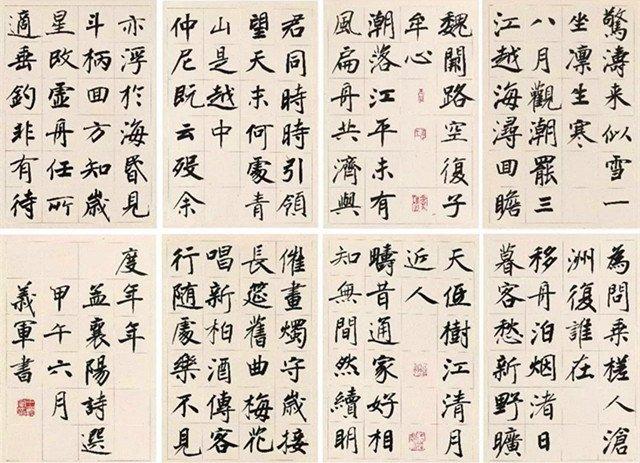 驚濤来似雪一
坐凛生寒
八月觀潮罷三
江越海潯回瞻
魏闕路空復子
牟心
潮落江平未有
風扁舟共濟與
君同時時引領
望天末何處青
山是越中
仲尼既云歿余
亦浮於海昏見
斗柄回方知歲
星改虛舟任所
適垂釣非有待
為問乘槎人滄
洲復誰在
移舟泊烟渚日
暮客愁新野曠
天低樹江清月
近人
疇昔通家好相
知無間然續明
催畫燭守歲接
長筵舊曲梅花
唱新柏酒傳客
行随處樂不見
度年年
孟襄陽詩選
甲午六月
義軍書